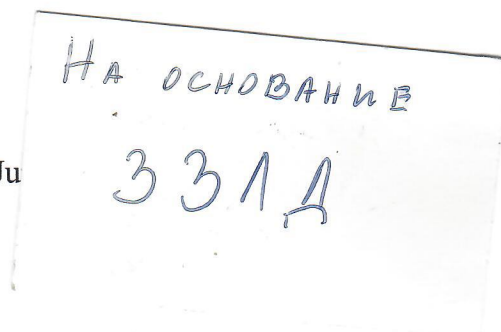 На основание
ЗЗЛД
Ju